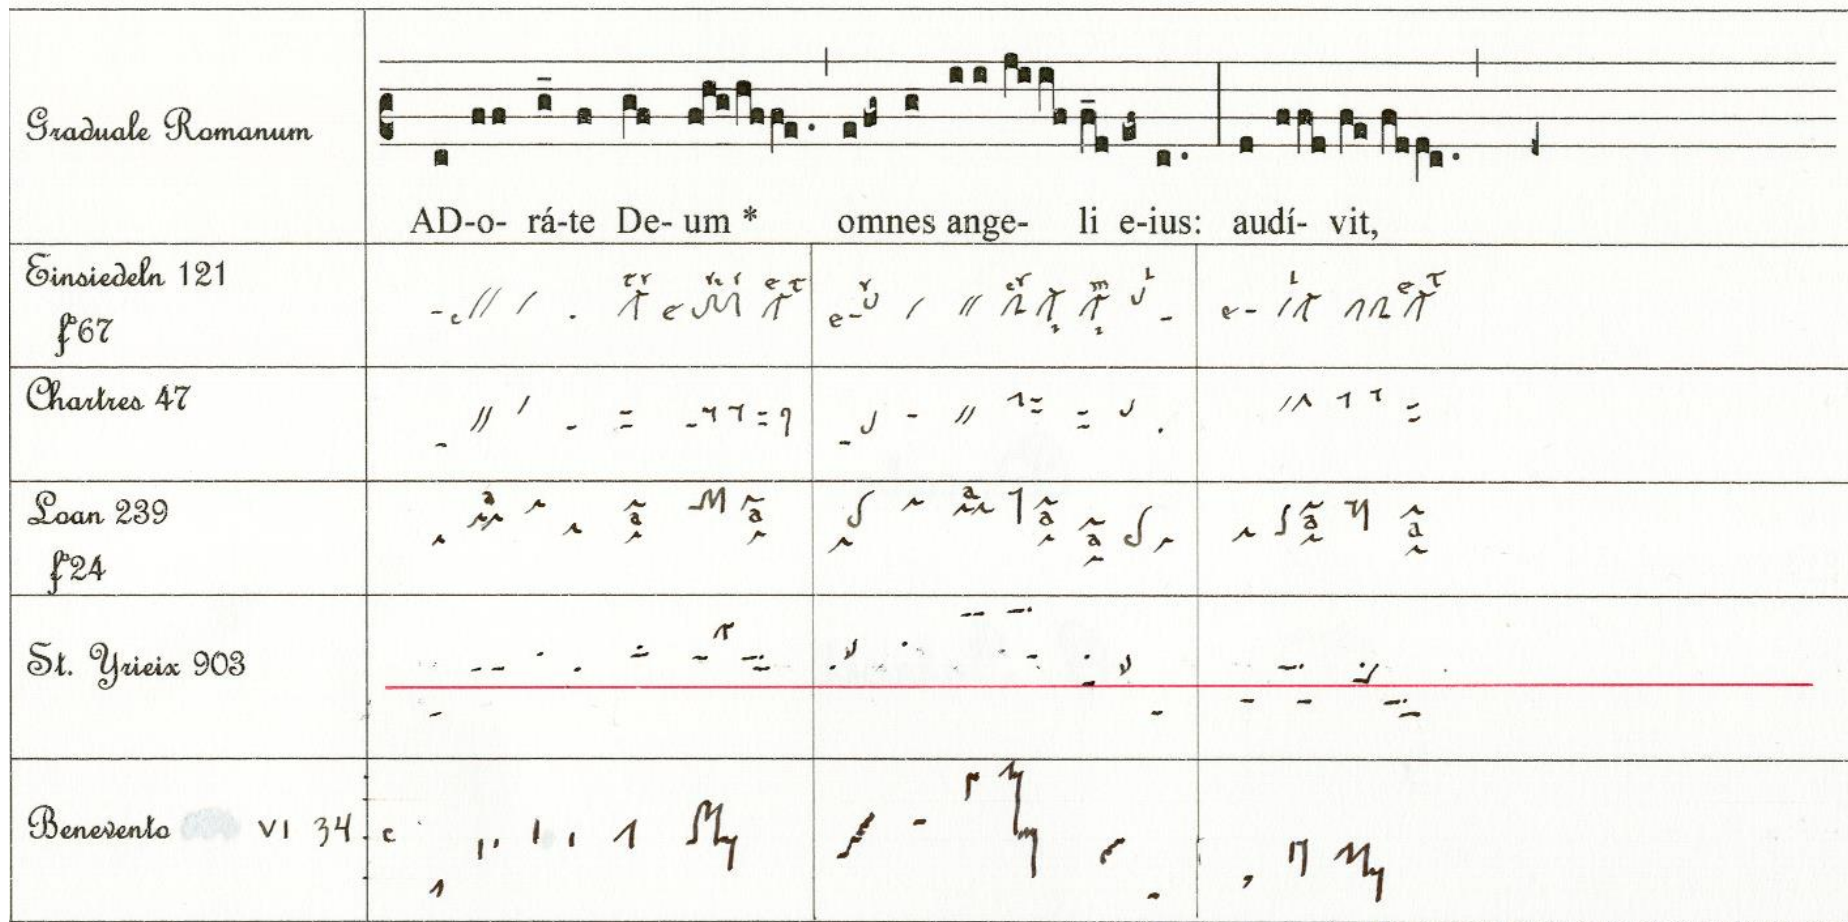 Graduale Romanum
AD-o- rá-te De- um * omnes ange- li e-ius: audí- vit,
Einsiedeln 121
f°67
Chartres 47
Loan 239
f°24
St. Yrieix 903
Benevento VI 34 c